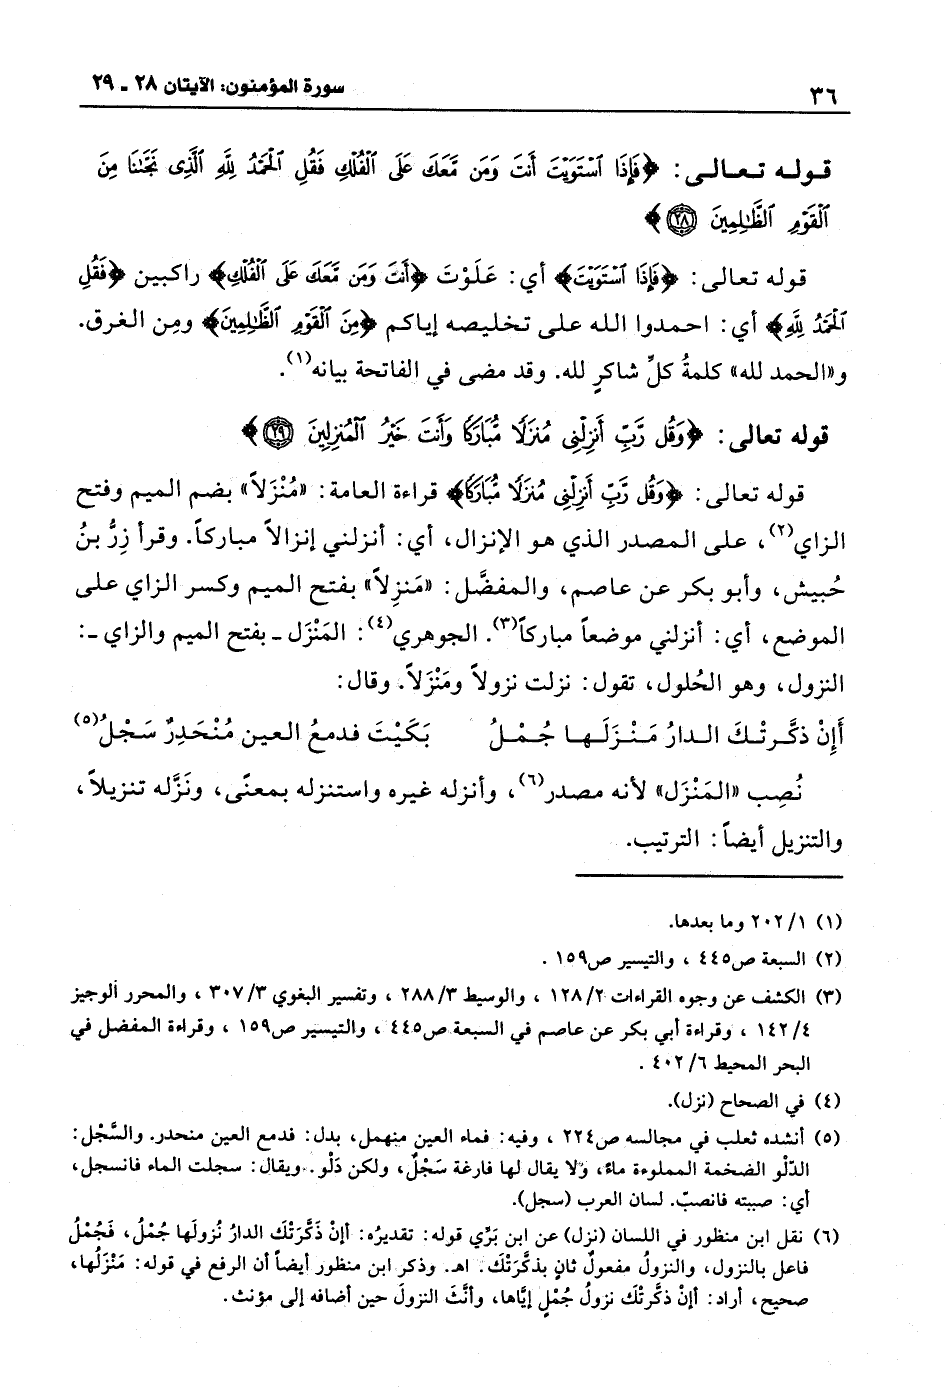 ٣٦
سورة المؤمنون: الآيتان ٢٨ ـ ٢٩
قولـه تـعـالـى: ﴿فَإِذَا ٱسْتَوَيْتَ أَنتَ وَمَن مَّعَكَ عَلَى ٱلْفُلْكِ فَقُلِ ٱلْحَمْدُ لِلَّهِ ٱلَّذِى نَجَّىٰنَا مِنَ
ٱلْقَوْمِ ٱلظَّـٰلِمِينَ ﴿٢٨﴾﴾
قوله تعالى: ﴿فَإِذَا ٱسْتَوَيْتَ﴾ أي: عَلَوْتَ ﴿أَنتَ وَمَن مَّعَكَ عَلَى ٱلْفُلْكِ﴾ راكبين ﴿فَقُلِ
ٱلْحَمْدُ لِلَّهِ﴾ أي: احمدوا الله على تخليصه إياكم ﴿مِنَ ٱلْقَوْمِ ٱلظَّـٰلِمِينَ﴾ ومِن الغرق.
و«الحمد لله» كلمةُ كلِّ شاكرٍ لله. وقد مضى في الفاتحة بيانه(١).
قوله تعالى: ﴿وَقُل رَّبِّ أَنزِلْنِى مُنزَلًا مُّبَارَكًا وَأَنتَ خَيْرُ ٱلْمُنزِلِينَ ﴿٢٩﴾﴾
قوله تعالى: ﴿وَقُل رَّبِّ أَنزِلْنِى مُنزَلًا مُّبَارَكًا﴾ قراءة العامة: «مُنْزَلاً» بضم الميم وفتح
الزاي(٢)، على المصدر الذي هو الإنزال، أي: أنزلني إنزالاً مباركاً. وقرأ زِرُّ بنُ
حُبيش، وأبو بكر عن عاصم، والمفضَّل: «مَنزِلاً» بفتح الميم وكسر الزاي على
الموضع، أي: أنزلني موضعاً مباركاً(٣). الجوهري(٤): المَنْزَل ـ بفتح الميم والزاي ـ:
النزول، وهو الحُلول، تقول: نزلت نزولاً ومَنْزَلاً. وقال:
أَإِنْ ذكَّرتْـكَ الـدارُ مَـنْـزَلَـهـا جُـمْـلُ بَكَيْتَ فدمعُ العين مُنْحَدِرٌ سَجْلُ(٥)
نُصِب «المَنْزَل» لأنه مصدر(٦)، وأنزله غيره واستنزله بمعنًى، ونَزَّله تنزيلاً،
والتنزيل أيضاً: الترتيب.
(١) ٢٠٢/١ وما بعدها.
(٢) السبعة ص٤٤٥ ، والتيسير ص١٥٩ .
(٣) الكشف عن وجوه القراءات ١٢٨/٢ ، والوسيط ٢٨٨/٣ ، وتفسير البغوي ٣٠٧/٣ ، والمحرر الوجيز
١٤٢/٤ ، وقراءة أبي بكر عن عاصم في السبعة ص٤٤٥ ، والتيسير ص١٥٩ ، وقراءة المفضل في
البحر المحيط ٤٠٢/٦ .
(٤) في الصحاح (نزل).
(٥) أنشده ثعلب في مجالسه ص٢٢٤ ، وفيه: فماء العين منهمل، بدل: فدمع العين منحدر. والسَّجْل:
الدّلْو الضخمة المملوءة ماءً، ولا يقال لها فارغة سَجْلٌ، ولكن دَلْو. ويقال: سجلت الماء فانسجل،
أي: صببته فانصبّ. لسان العرب (سجل).
(٦) نقل ابن منظور في اللسان (نزل) عن ابن بَرِّي قوله: تقديرُه: أإنْ ذَكَّرَتْكَ الدارُ نُزولَها جُمْلُ، فَجُمْلُ
فاعل بالنزول، والنزولُ مفعولٌ ثانٍ بذكَّرَتْكَ. اهـ. وذكر ابن منظور أيضاً أن الرفع في قوله: مَنْزَلُها،
صحيح، أراد: أإنْ ذكَّرتْك نزولُ جُمْلٍ إيَّاها، وأنَّثَ النزولَ حين أضافه إلى مؤنث.